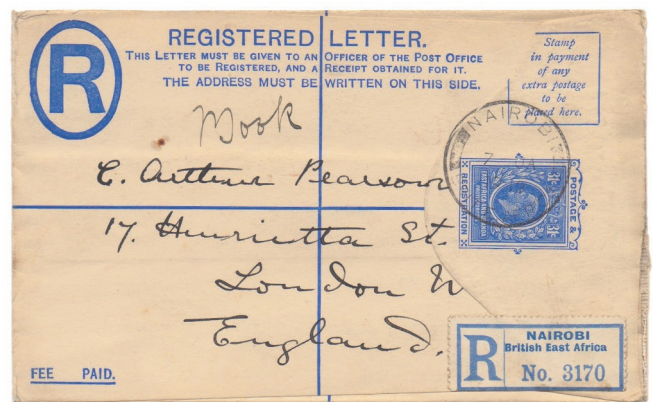 R
REGISTERED LETTER.
THIS LETTER MUST BE GIVEN TO AN OFFICER OF THE POST OFFICE
TO BE REGISTERED, AND A RECEIPT OBTAINED FOR IT.
THE ADDRESS MUST BE WRITTEN ON THIS SIDE.
Stamp
in payment
of any
extra postage
to be
placed here.
NAIROBI
Book
C. Arthur Pearson
17. Henrietta St.
London W
England.
POSTAGE &
REGISTRATION
FEE PAID.
R
NAIROBI
British East Africa
No. 3170